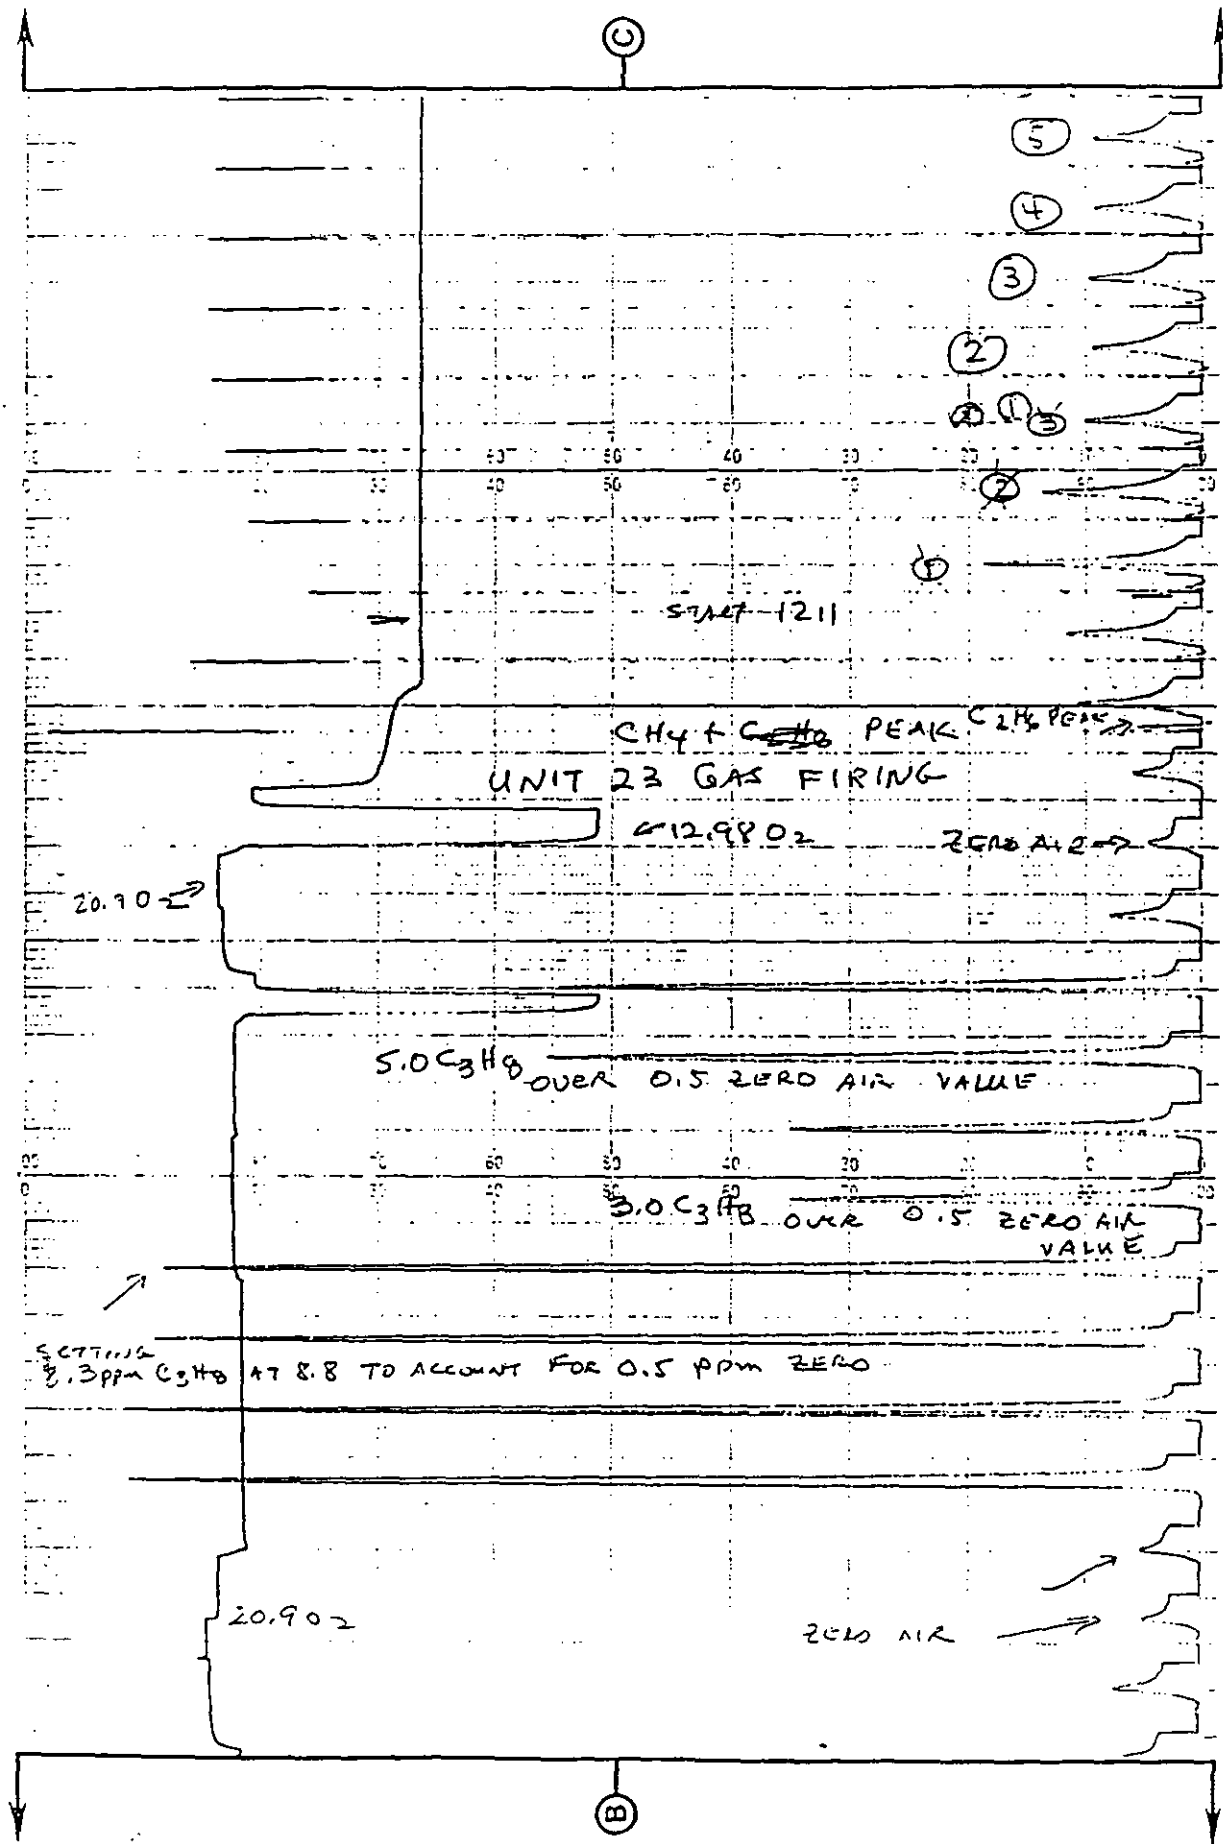 C
5
4
3
2
1
3
2
START 1211
CH4 + C3H8 PEAK C2H6 PEAK
UNIT 23 GAS FIRING
12.98 O2
ZERO AIR
20.9 O2
5.0 C3H8 OVER 0.5 ZERO AIR VALUE
3.0 C3H8 OVER 0.5 ZERO AIR
VALUE
SETTING
8.3ppm C3H8 AT 8.8 TO ACCOUNT FOR 0.5 ppm ZERO
20.9 O2
ZERO AIR
B